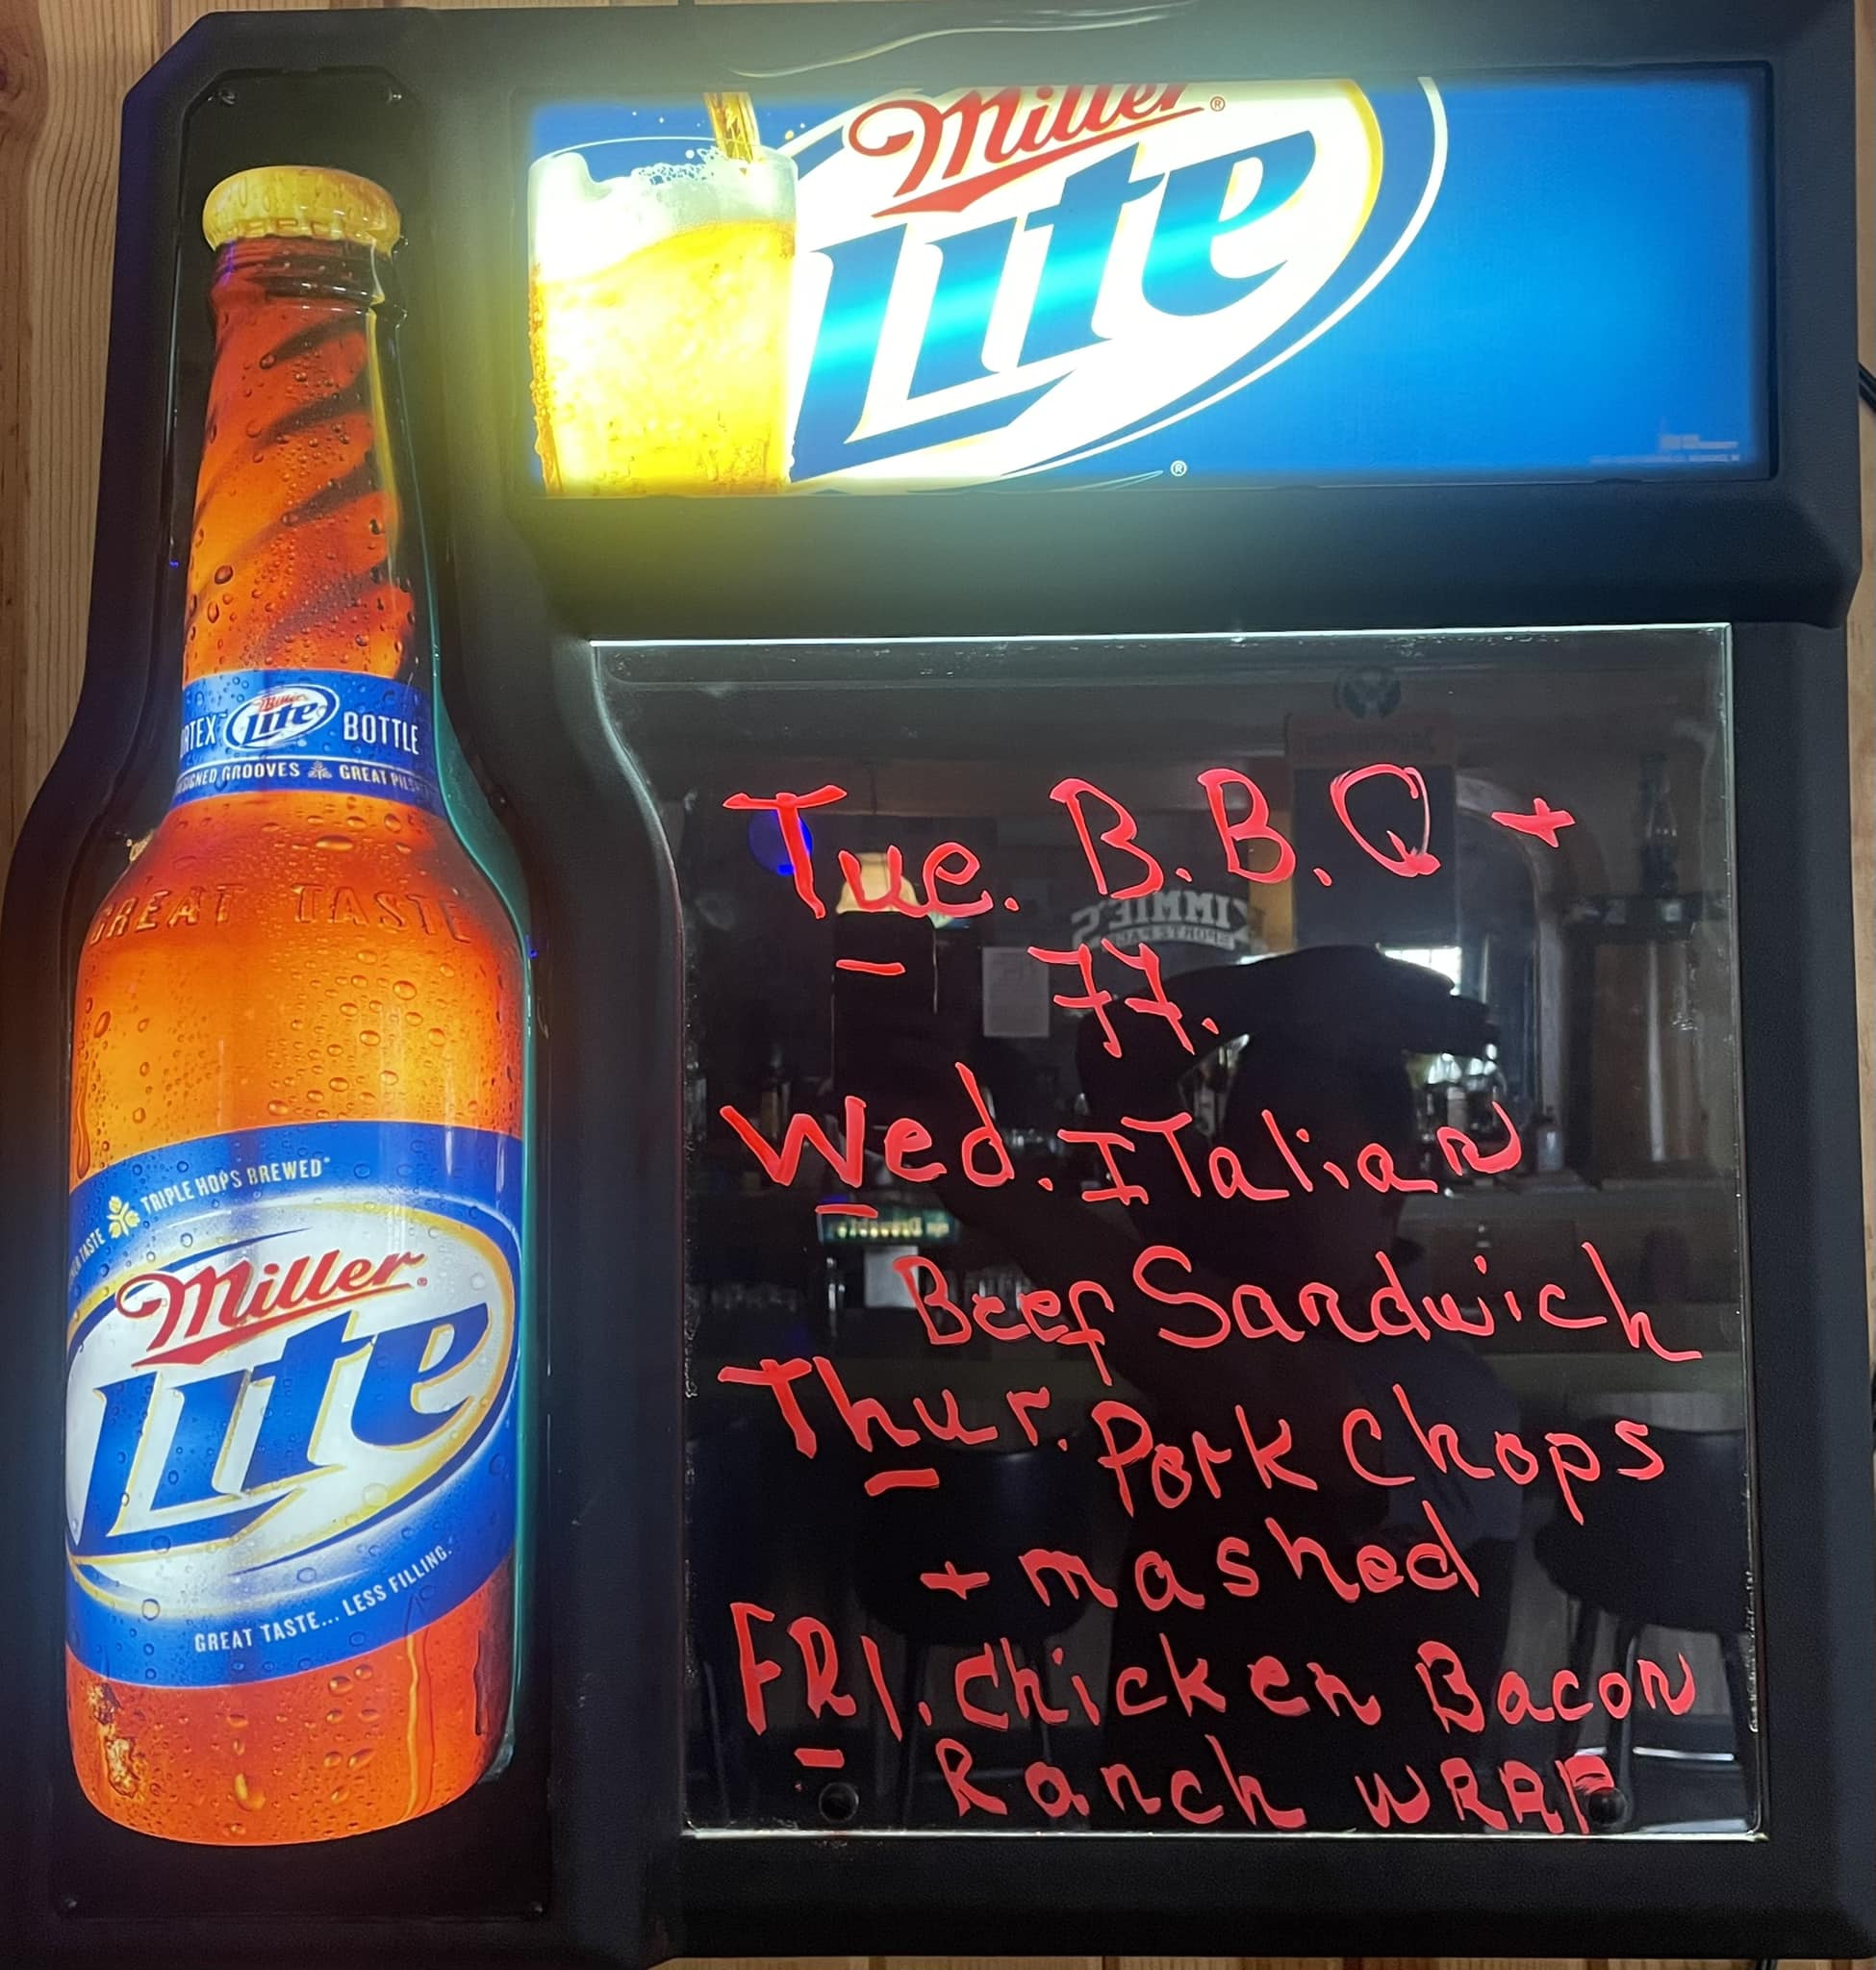 Miller®
Lite
®
RTEX Miller Lite BOTTLE
SIGNED GROOVES GREAT PILS
GREAT TASTE
TASTE TRIPLE HOPS BREWED*
Miller®
Lite
GREAT TASTE... LESS FILLING.
Tue. B.B.Q +
77.
Wed. ITalian
Beef Sandwich
Thur. Pork Chops
+ mashed
FRI. Chicken Bacon
Ranch WRAP
ZIMMIE'S